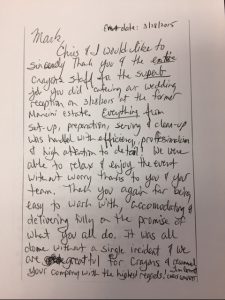 date: 3/18/2015
Mark,
Chris & I would like to
sincerely thank you & the entire
Crayons staff for the superb
job you did catering our wedding
reception on 3/18/2015 at the former
Mancini estate. Everything from
set-up, preparation, serving & clean-up
was handled with efficiency, professionalism
& high attention to detail. We were
able to relax & enjoy the event
without worry thanks to you & your
team. Thank you again for being
easy to work with, accomodating &
delivering fully on the promise of
what you all do. It was all
done without a single incident & we
are greatful for Crayons & recommend
your company with the highest regards!